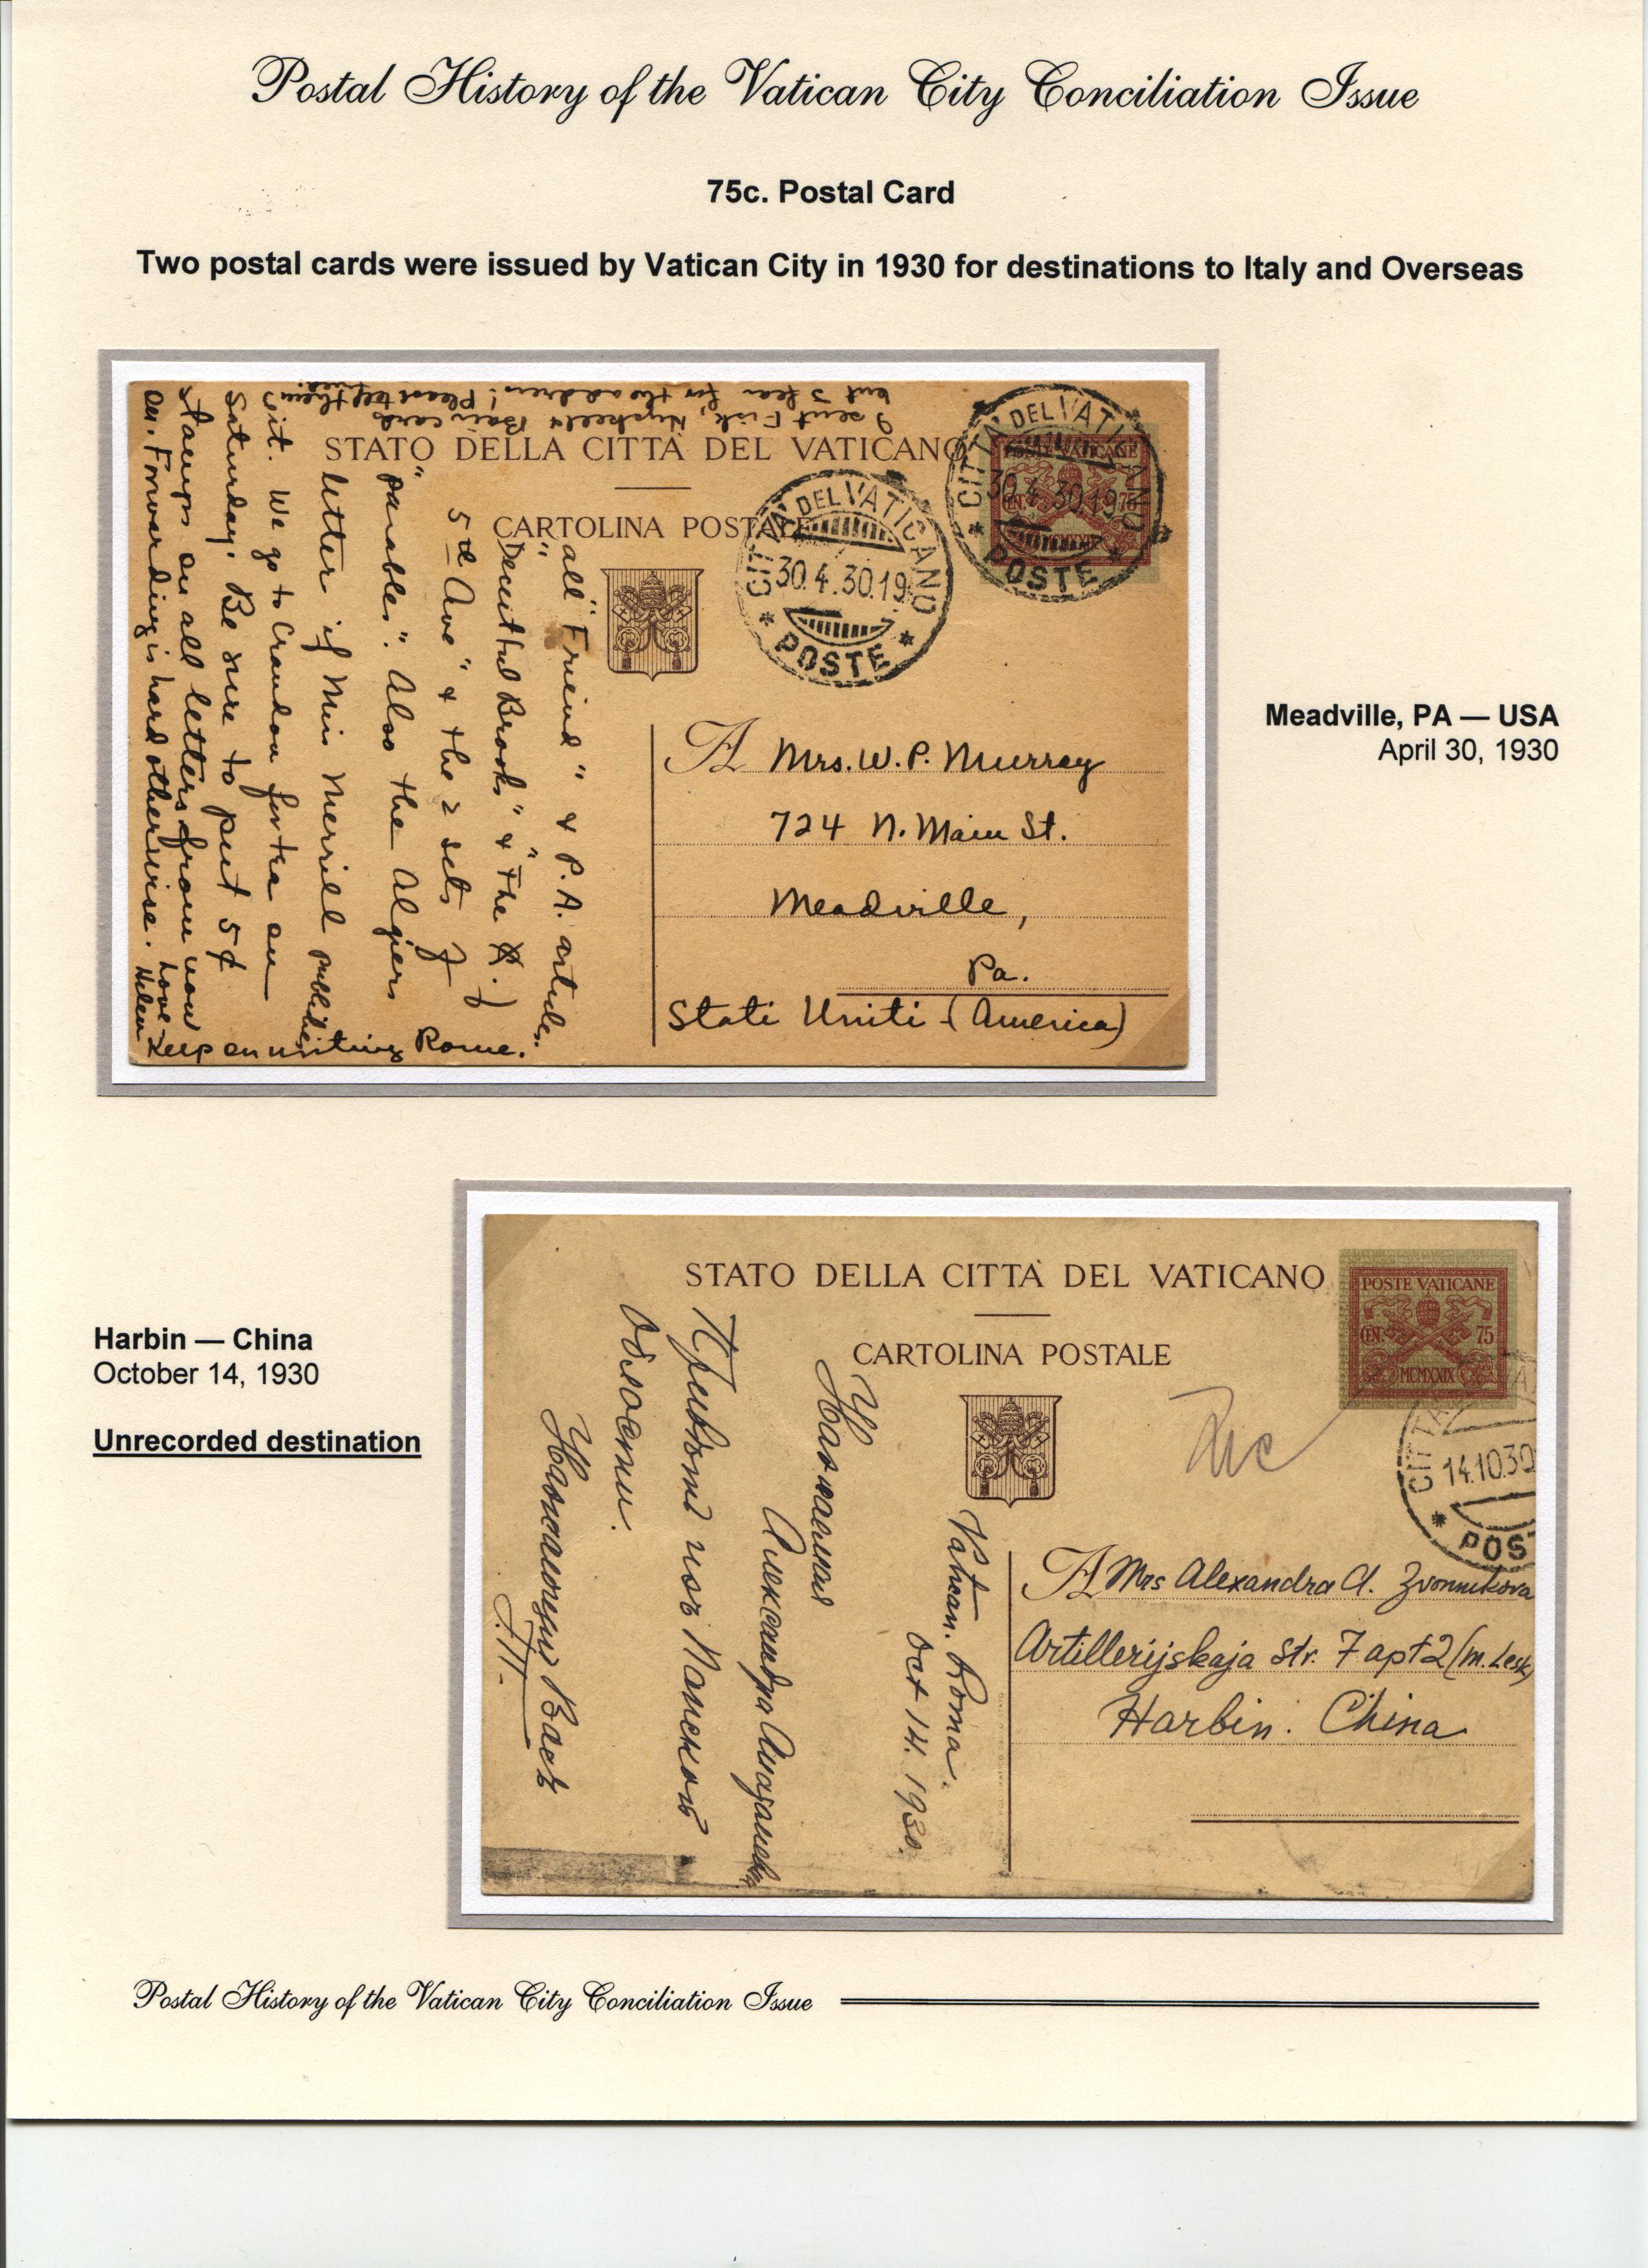 Postal History of the Vatican City Conciliation Issue
75c. Postal Card
Two postal cards were issued by Vatican City in 1930 for destinations to Italy and Overseas
I sent Fisk, Bain cards
but I fear for the address! Please tell them
STATO DELLA CITTÀ DEL VATICANO
CARTOLINA POSTALE
CITTA DEL VATICANO
30.4.30.19
* POSTE *
CITTA DEL VATICANO
30.4.30.19
* POSTE *
POSTE VATICANE
CEN. 75
MCMXXIX
all "Friend" & P.A. articles.
"Deceitful Brooks" & "The
5th Ave" & the 2 sets of
"parables". Also the Algiers
letter if Miss Merrill publishes
it. We go to Crandon for tea on
Saturday. Be sure to put 5¢
stamps on all letters from now
on. Forwarding is hard otherwise. Love - Helen
Keep on writing Rome.
A Mrs. W. P. Murray
724 N. Main St.
Meadville,
Pa.
Stati Uniti - (America)
Meadville, PA — USA
April 30, 1930
Harbin — China
October 14, 1930
Unrecorded destination
STATO DELLA CITTÀ DEL VATICANO
CARTOLINA POSTALE
POSTE VATICANE
CEN. 75
MCMXXIX
14.10.30
* POS
Vatican. Roma.
Oct 14. 1930.
Александра
Привѣтъ изъ Папской
области.
Вась
A Mrs Alexandra A. Zvonnikova
Artillerijskaja Str. 7 apt 2 (m. Lesk)
Harbin. China
Postal History of the Vatican City Conciliation Issue